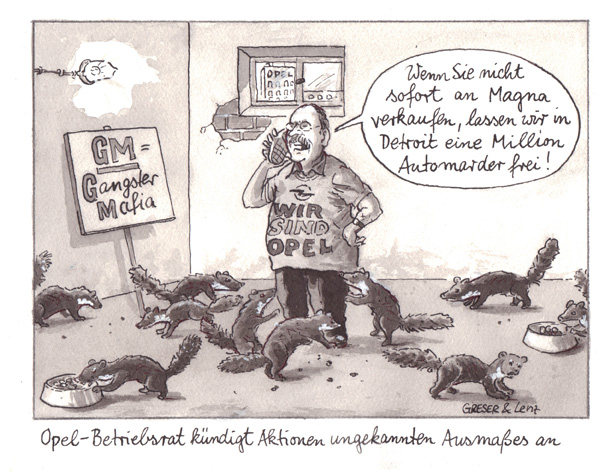 OPEL
Wenn Sie nicht
sofort an Magna
verkaufen, lassen wir in
Detroit eine Million
Automarder frei!
GM =
Gangster
Mafia
WIR
SIND
OPEL
GRESER & Lenz
Opel-Betriebsrat kündigt Aktionen ungekannten Ausmaßes an